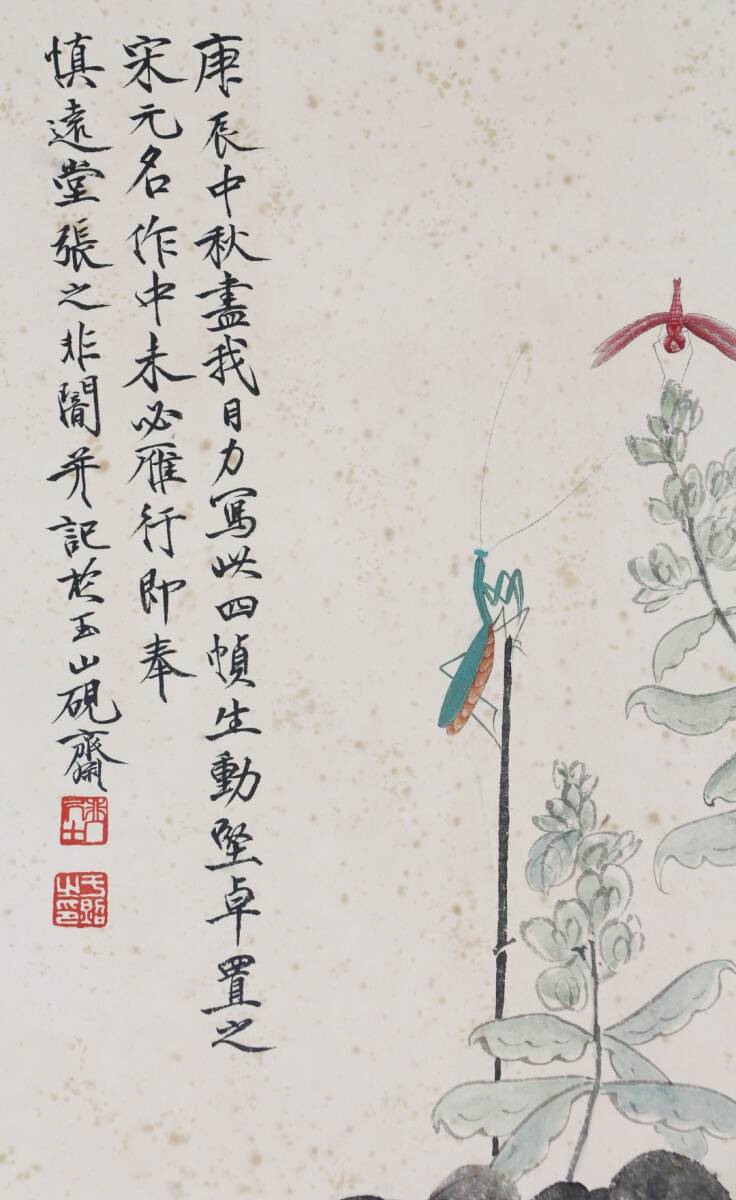 庚辰中秋盡我目力寫此四幀生動堅卓置之
宋元名作中未必雁行即奉
慎遠堂張之非闇并記於玉山硯齋